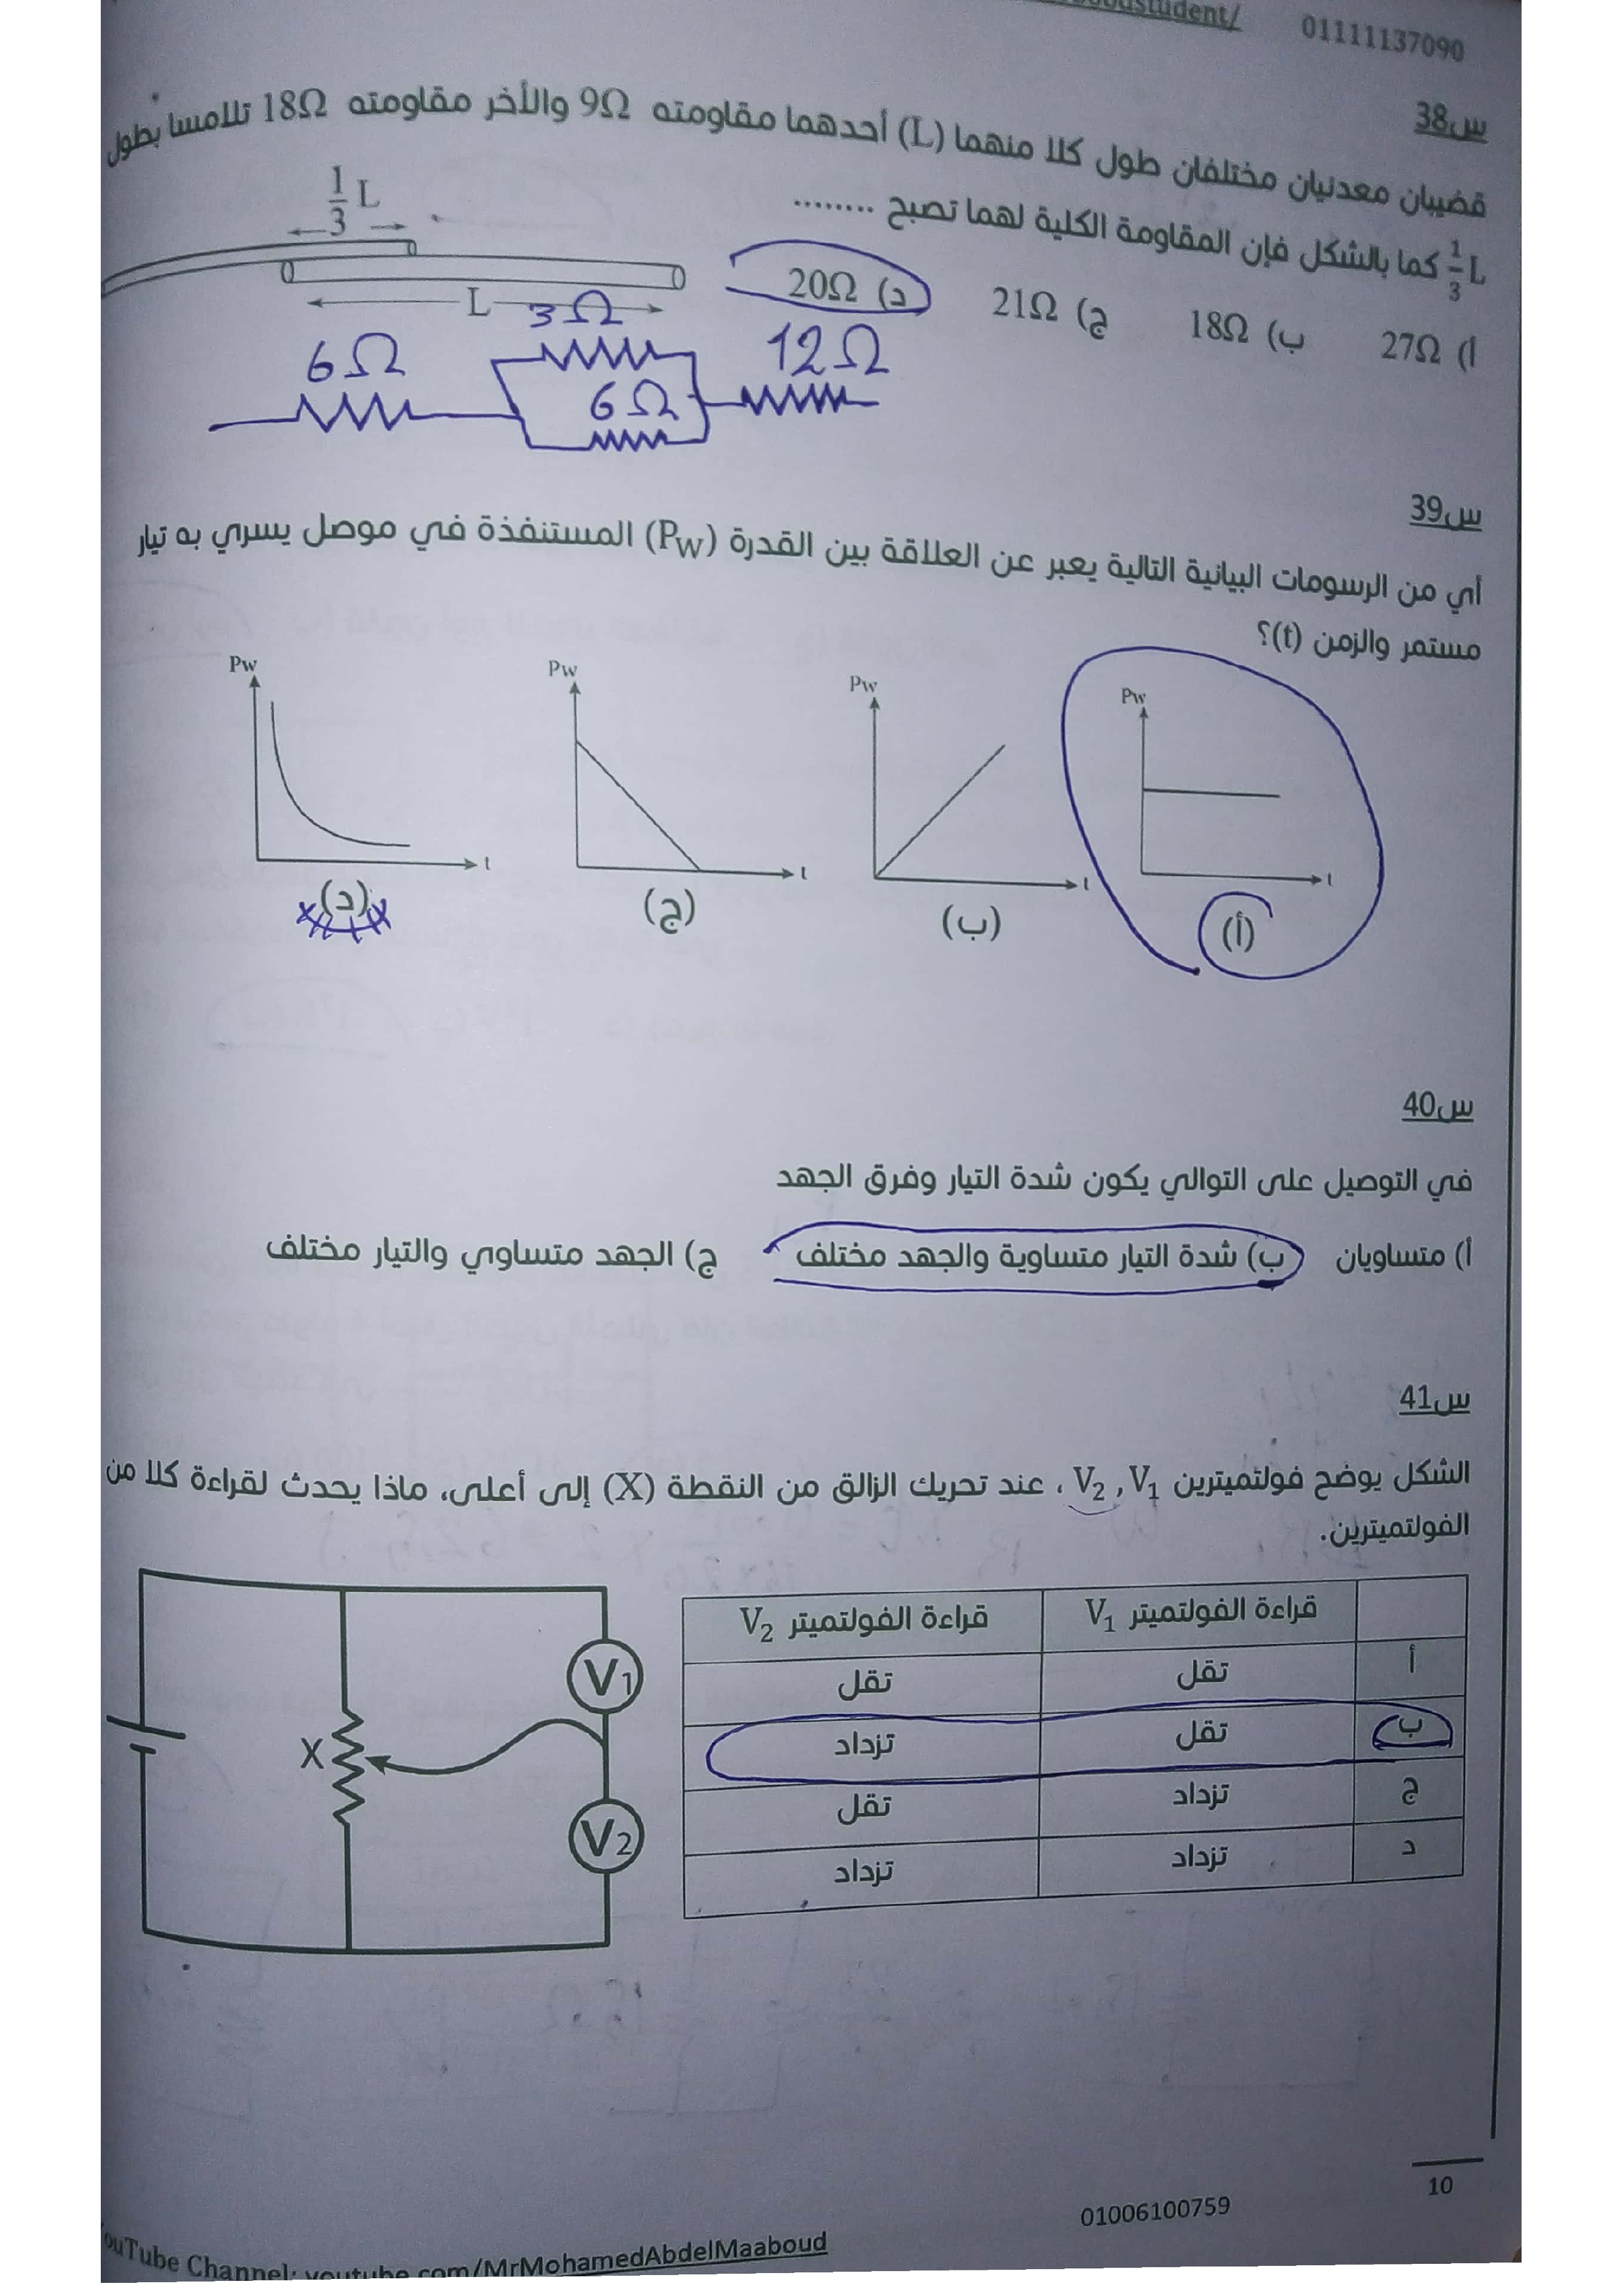 01111137090
س38
قضيبان معدنيان مختلفان طول كلا منهما (L) أحدهما مقاومته 9Ω والأخر مقاومته 18Ω تلامسا بطول
$\frac{1}{3}$L كما بالشكل فإن المقاومة الكلية لهما تصبح ........
$\frac{1}{3}$ L
L
أ) 27Ω ب) 18Ω ج) 21Ω د) 20Ω
6Ω 3Ω 6Ω 12Ω
س39
أي من الرسومات البيانية التالية يعبر عن العلاقة بين القدرة (Pw) المستنفذة في موصل يسري به تيار
مستمر والزمن (t)؟
Pw Pw Pw Pw
t t t t
(أ) (ب) (ج) (د)
س40
في التوصيل على التوالي يكون شدة التيار وفرق الجهد
أ) متساويان ب) شدة التيار متساوية والجهد مختلف ج) الجهد متساوي والتيار مختلف
س41
الشكل يوضح فولتميترين V₂ , V₁ ، عند تحريك الزالق من النقطة (X) إلى أعلى، ماذا يحدث لقراءة كلا من
الفولتميترين.
قراءة الفولتميتر V₁ قراءة الفولتميتر V₂
أ تقل تقل
ب تقل تزداد
ج تزداد تقل
د تزداد تزداد
V1
X
V2
10
01006100759
YouTube Channel: youtube.com/MrMohamedAbdelMaaboud